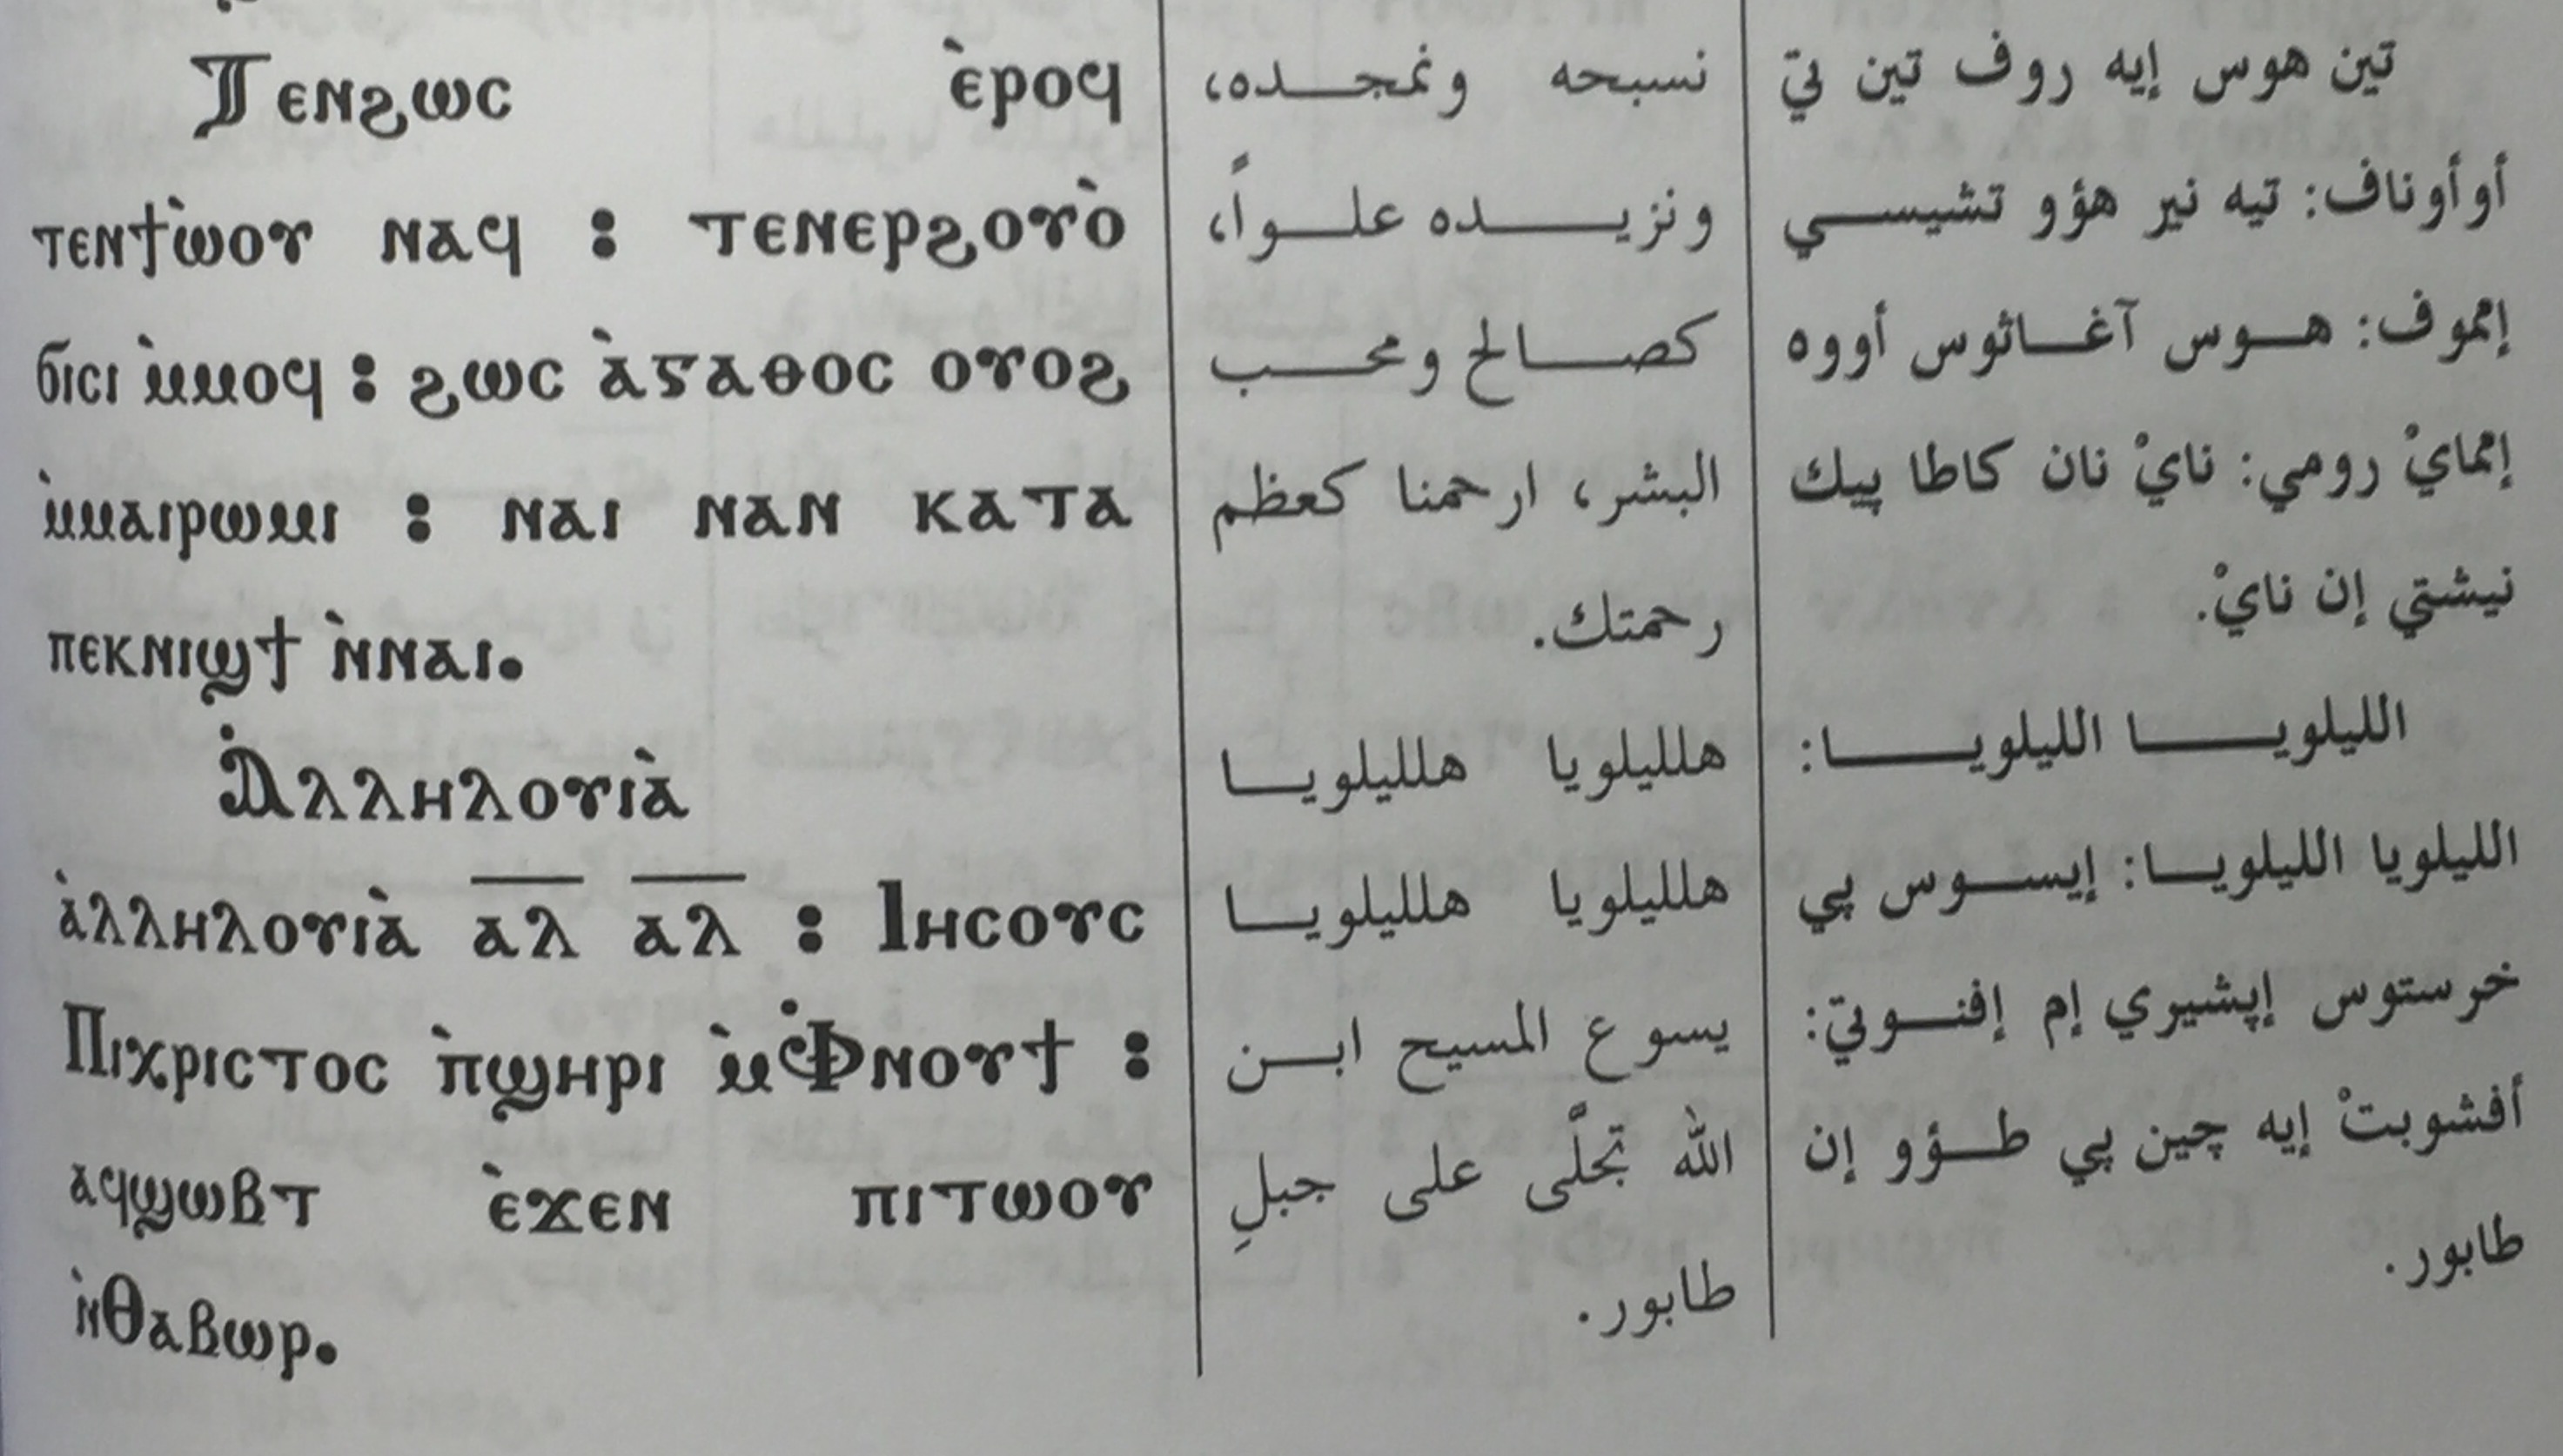 Ⲧⲉⲛϩⲱⲥ ⲉ̀ⲣⲟϥ
ⲧⲉⲛϯⲱ̀ⲟⲩ ⲛⲁϥ : ⲧⲉⲛⲉⲣϩⲟⲩⲟ̀
ϭⲓⲥⲓ ⲙ̀ⲙⲟϥ : ϩⲱⲥ ⲁ̀ⲅⲁⲑⲟⲥ ⲟⲩⲟϩ
ⲙ̀ⲙⲁⲓⲣⲱⲙⲓ : ⲛⲁⲓ ⲛⲁⲛ ⲕⲁⲧⲁ
ⲡⲉⲕⲛⲓϣϯ ⲛ̀ⲛⲁⲓ.
Ⲁ̀ⲗⲗⲏⲗⲟⲩⲓⲁ̀
ⲁ̀ⲗⲗⲏⲗⲟⲩⲓⲁ̀ ⲁ̅ⲗ̅ ⲁ̅ⲗ̅ : Ⲓⲏⲥⲟⲩⲥ
Ⲡⲓⲭⲣⲓⲥⲧⲟⲥ ⲡ̀ϣⲏⲣⲓ ⲙ̀Ⲫ̀ⲛⲟⲩϯ :
ⲁϥϣⲱⲃⲧ ⲉ̀ϫⲉⲛ ⲡⲓⲧⲱⲟⲩ
ⲛ̀Ⲑⲁⲃⲱⲣ.
نسبحه ونمجده،
ونزيده علواً،
كصالح ومحب
البشر، ارحمنا كعظم
رحمتك.
هلليلويا هلليلويا
هلليلويا هلليلويا
يسوع المسيح ابن
الله تجلَّى على جبلِ
طابور.
تين هوس إيه روف تين تي
أوأوناف: تيه نير هؤو تشيسي
إمموف: هوس آغاثوس أووه
إممايْ رومي: نايْ نان كاطا پيك
نيشتي إن نايْ.
الليلويا الليلويا:
الليلويا الليلويا: إيسوس پي
خرستوس إپشيري إم إفنوتي:
أفشوبتْ إيه چين پي طؤو إن
طابور.